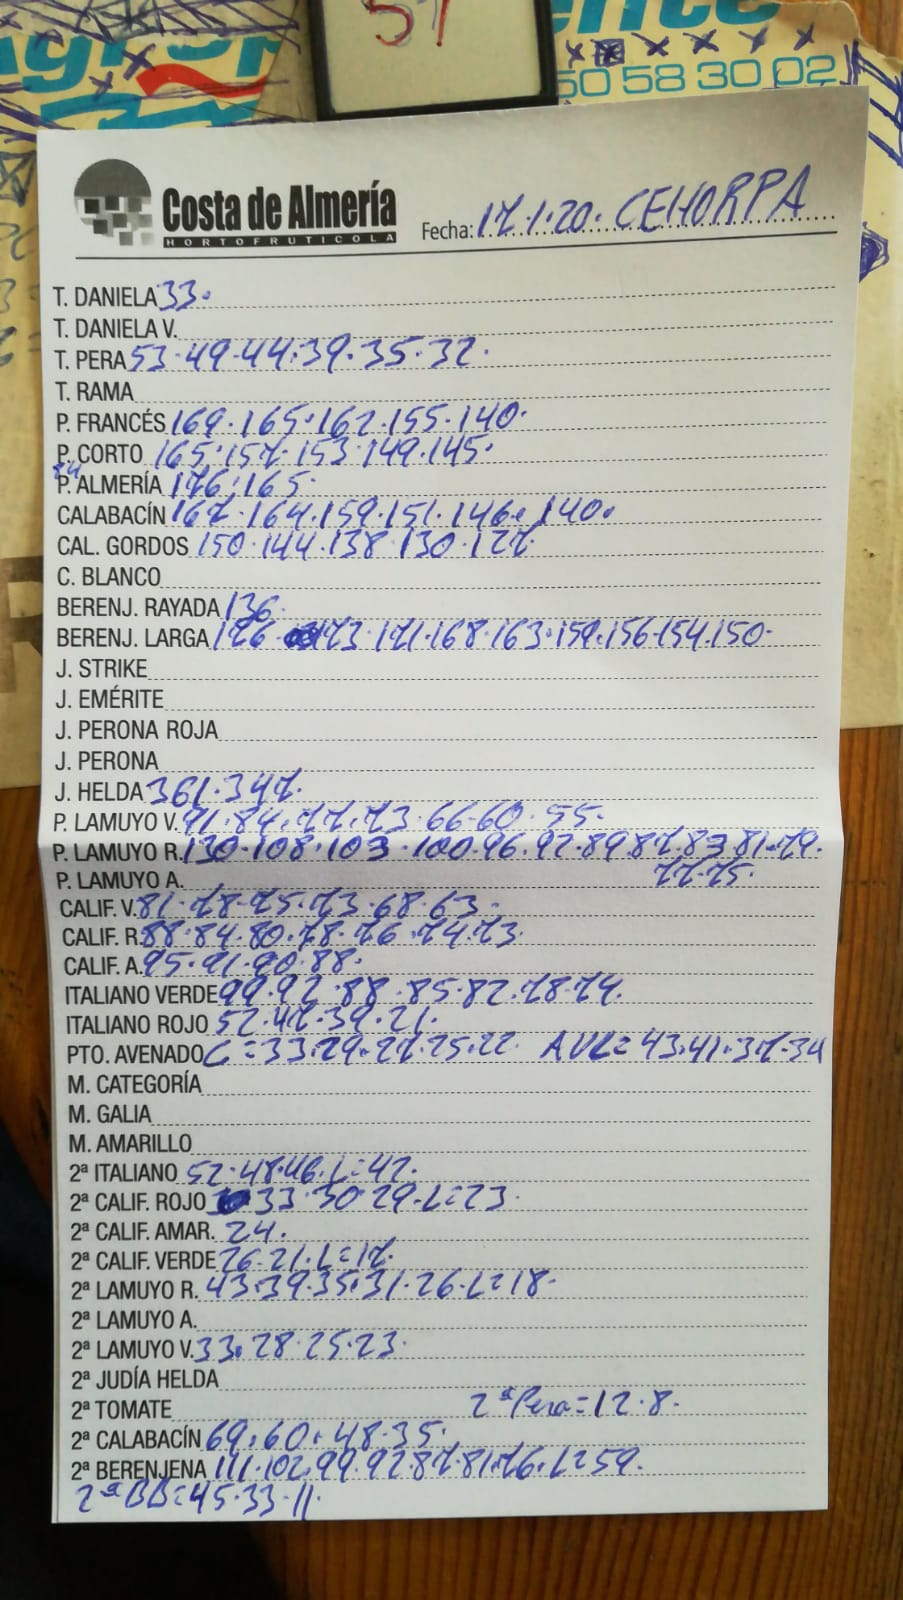 57
50 58 30 02
Costa de Almería
HORTOFRUTICOLA
Fecha: 17.1.20. CEHORPA
T. DANIELA 33.
T. DANIELA V.
T. PERA 53.49.44.39.35.32.
T. RAMA
P. FRANCÉS 169.165.162.155.140.
P. CORTO 165.157.153.149.145.
P. ALMERÍA 176.165.
CALABACÍN 167.164.159.151.146.140.
CAL. GORDOS 150.144.138.130.127
C. BLANCO
BERENJ. RAYADA 136.
BERENJ. LARGA 176.173.171.168.163.159.156.154.150.
J. STRIKE
J. EMÉRITE
J. PERONA ROJA
J. PERONA
J. HELDA 361.347.
P. LAMUYO V. 91.84.77.73.66.60.55.
P. LAMUYO R. 130.108.103.100.96.92.89.87.83.81.79.
77.75.
P. LAMUYO A.
CALIF. V. 81.78.75.73.68.63.
CALIF. R. 88.84.80.78.76.74.73.
CALIF. A. 95.91.90.88.
ITALIANO VERDE 99.92.88.85.82.78.74.
ITALIANO ROJO 52.47.39.21.
PTO. AVENADO C=33.29.27.25.22. AVL=43.41.37.34
M. CATEGORÍA
M. GALIA
M. AMARILLO
2ª ITALIANO 52.48.46.L=42.
2ª CALIF. ROJO 33.30.29.L=23.
2ª CALIF. AMAR. 24.
2ª CALIF. VERDE 26.21.L=17.
2ª LAMUYO R. 43.39.35.31.26.L=18.
2ª LAMUYO A.
2ª LAMUYO V. 33.28.25.23.
2ª JUDÍA HELDA
2ª TOMATE 2ª Pera=12.8.
2ª CALABACÍN 69.60.48.35.
2ª BERENJENA 111.102.99.92.87.81.76.L=59.
2ª BB=45.33.11.